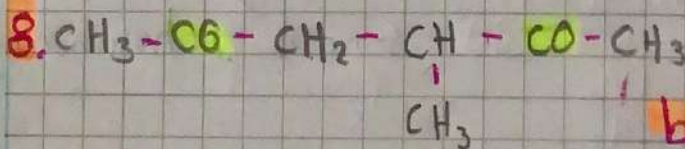 8. CH3 - CO - CH2 - CH - CO - CH3
CH3
b